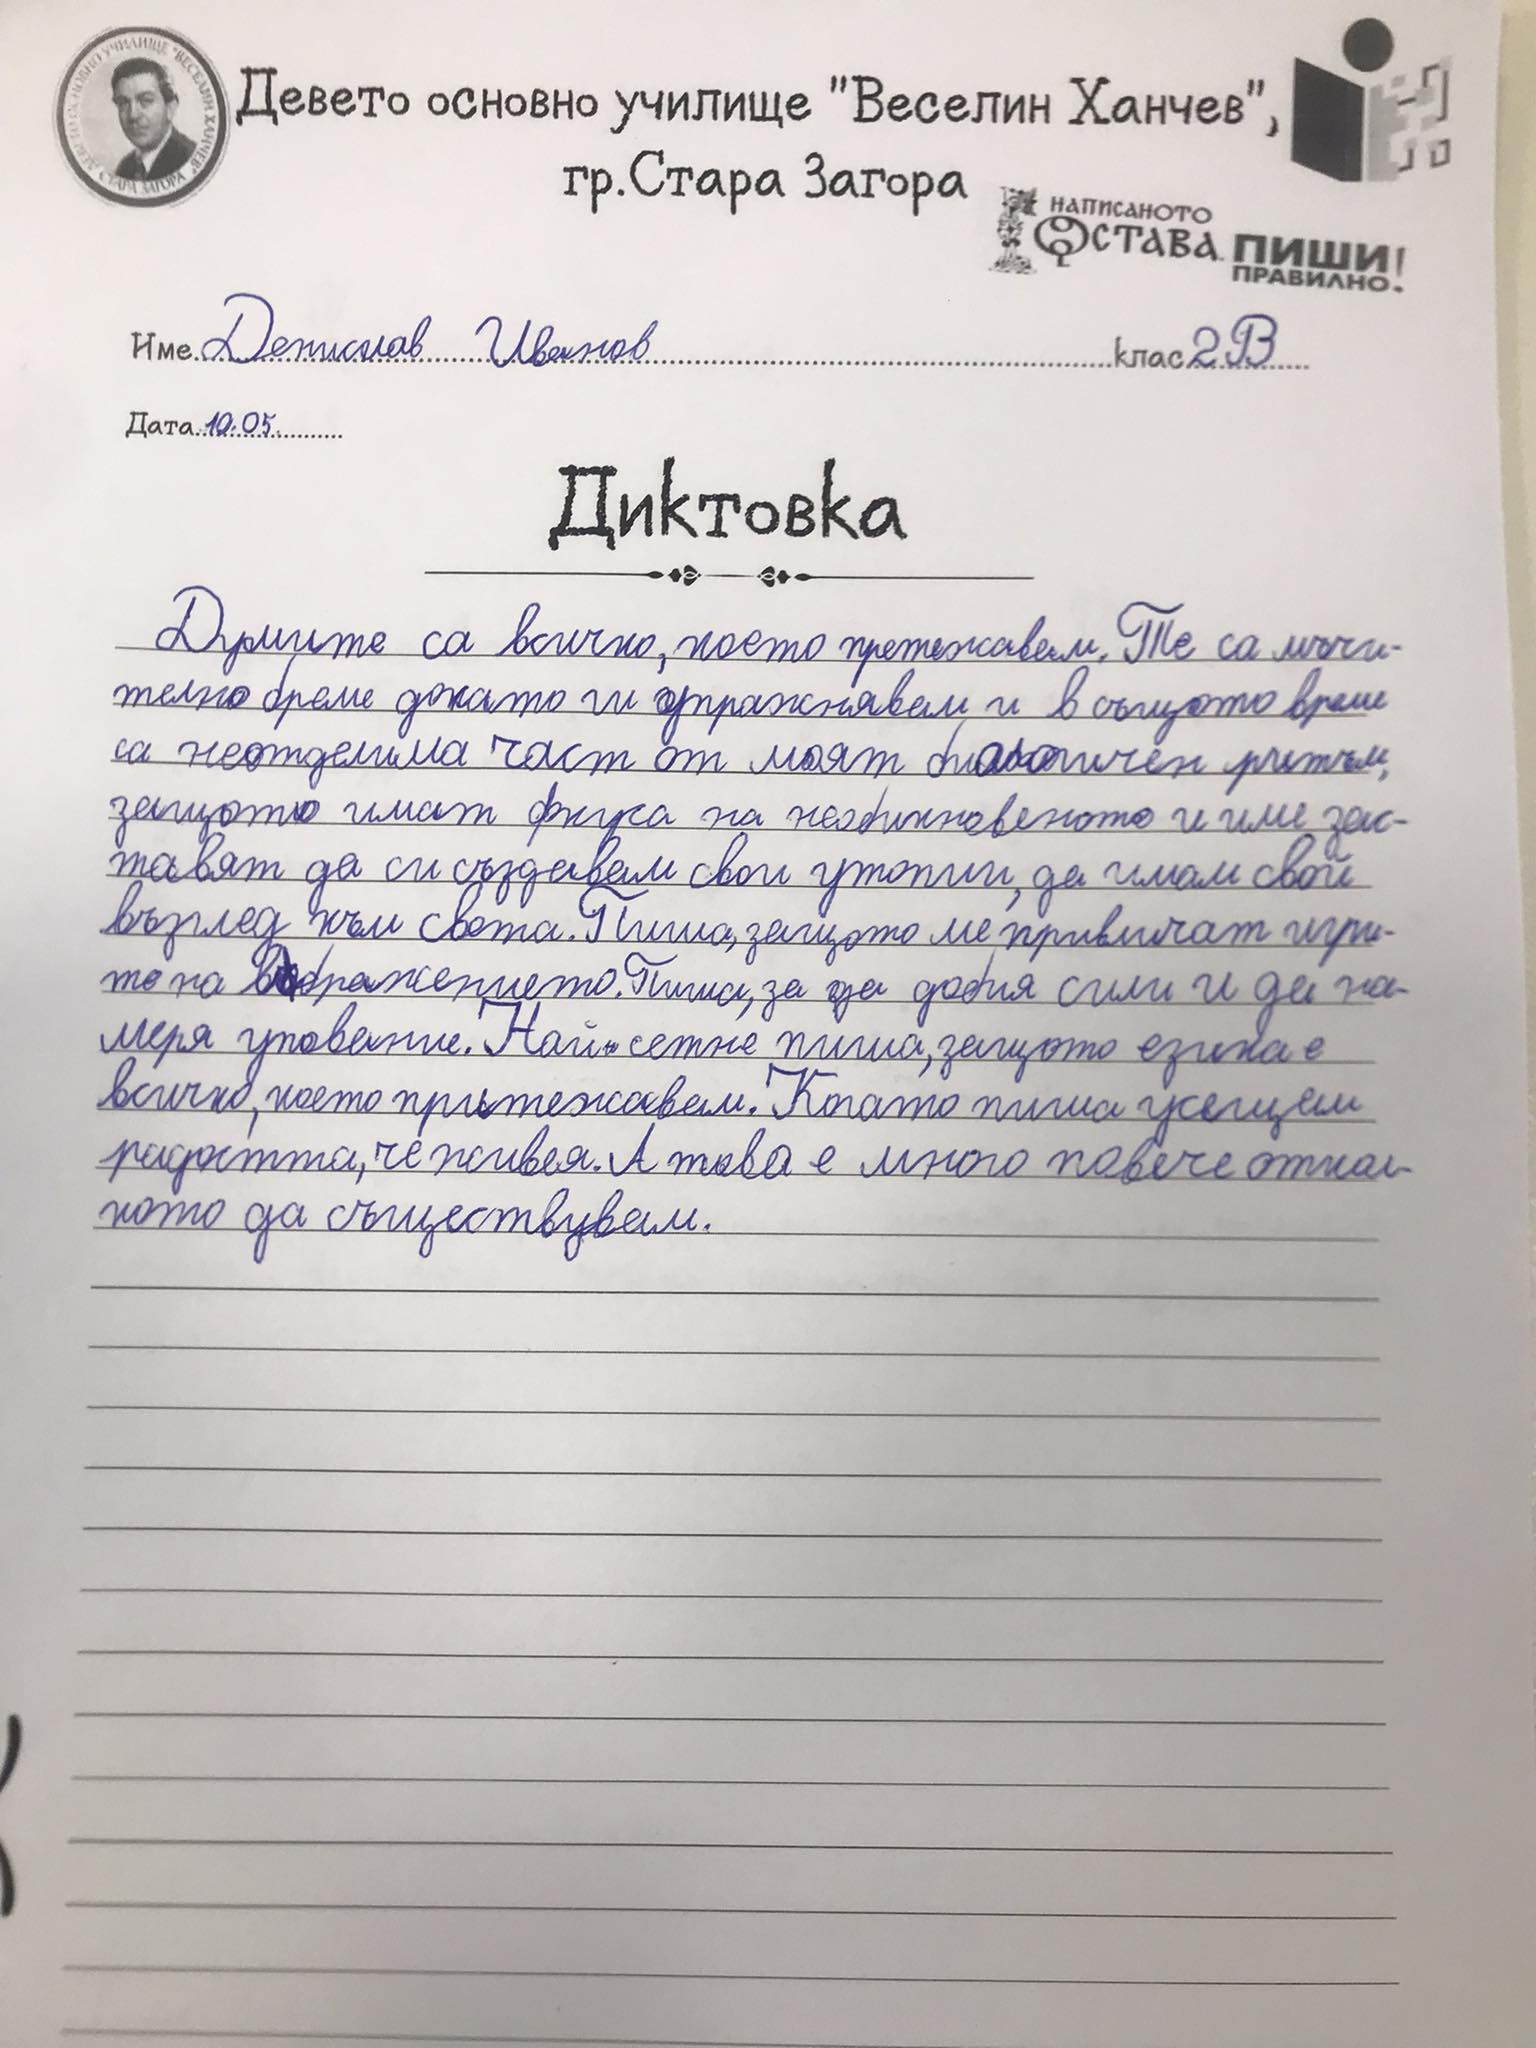 ДЕВЕТО ОСНОВНО УЧИЛИЩЕ "ВЕСЕЛИН ХАНЧЕВ" СТАРА ЗАГОРА
Девето основно училище "Веселин Ханчев",
гр.Стара Загора
НАПИСАНОТО
ОСТАВА ПИШИ
ПРАВИЛНО!
Име Денислав Иванов клас 2В
Дата 10.05.
Диктовка
Думите са всичко, което претежавам. Те са мъчи-
телно бреме докато ги упражнявам и в същото време
са неотделима част от моят биологичен ритъм,
защото имат фкуса на необикновеното и име зас-
тавят да си създавам свои утопии, да имам свой
възглед към света. Пиша, защото ме привличат игри-
те на въображението. Пиша, за да добия сили и да на-
меря упование. Най-сетне пиша, защото езика е
всичко, което притежавам. Когато пиша усещам
радостта, че живея. А това е много повече откол-
кото да съществувам.